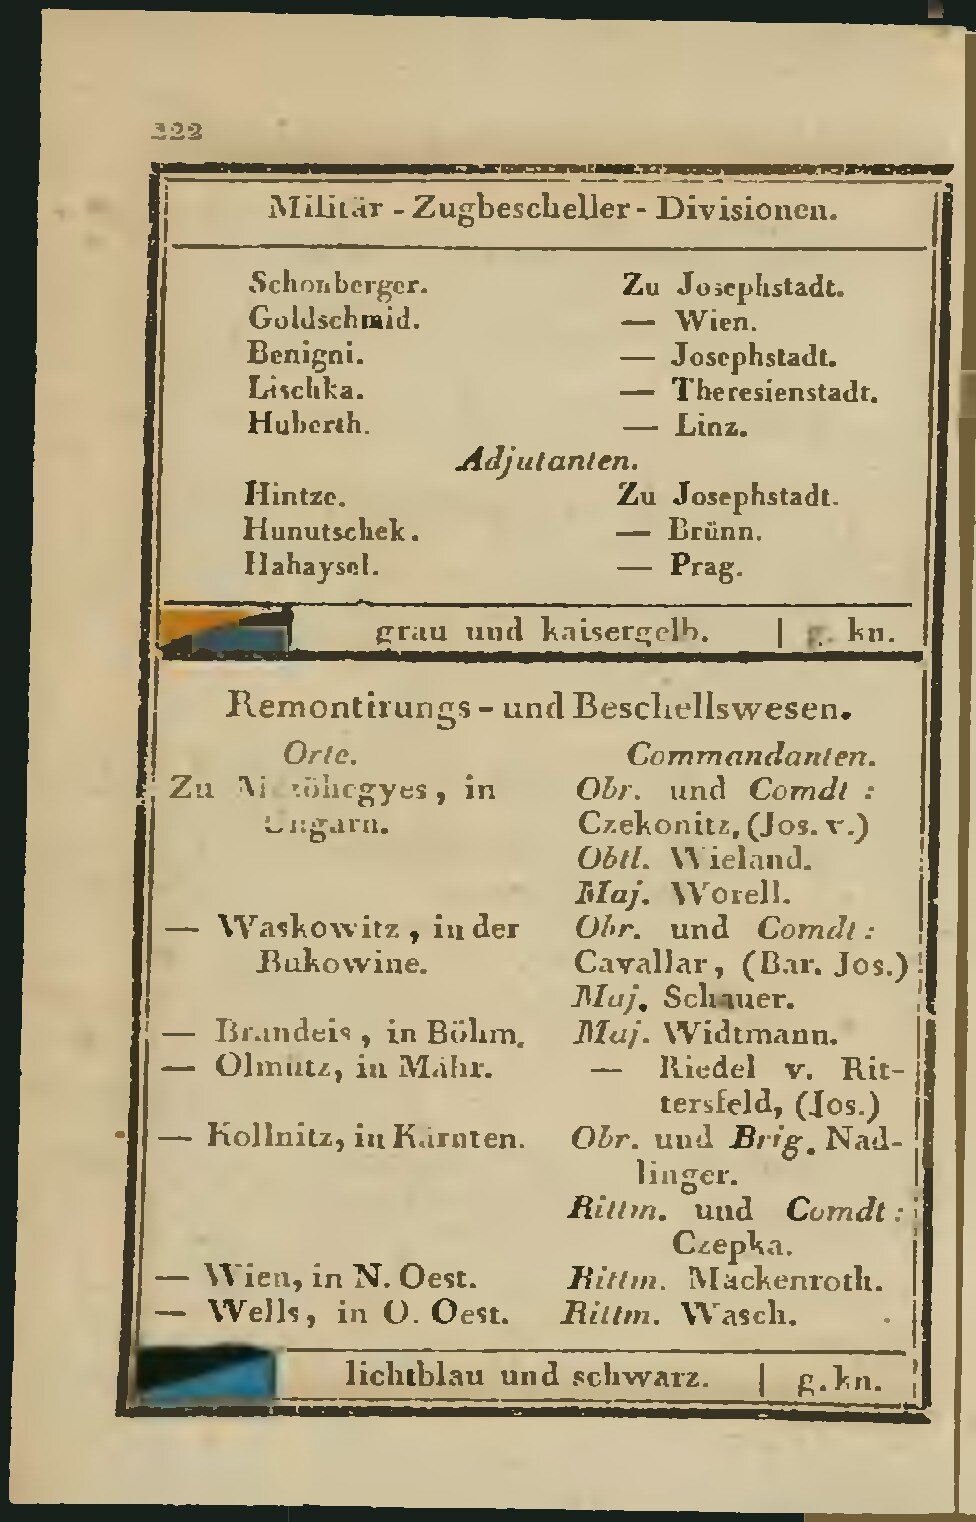 222
Militär - Zugbescheller - Divisionen.
Schonberger. Zu Josephstadt.
Goldschmid. — Wien.
Benigni. — Josephstadt.
Lischka. — Theresienstadt.
Huberth. — Linz.
Adjutanten.
Hintze. Zu Josephstadt.
Hunutschek. — Brünn.
Hahaysel. — Prag.
grau und kaisergelb. | g. kn.
Remontirungs - und Beschellswesen.
Orte. Commandanten.
Zu in Obr. und Comdt :
Ungarn. Czekonitz, (Jos. v.)
Obtl. Wieland.
Maj. Worell.
— Waskowitz, in der Obr. und Comdt :
Bukowine. Cavallar, (Bar. Jos.)
Maj. Schauer.
— Brandeis, in Böhm. Maj. Widtmann.
— Olmütz, in Mähr. — Riedel v. Rit-
tersfeld, (Jos.)
— Kollnitz, in Kärnten. Obr. und Brig. Nad-
linger.
Rittm. und Comdt :
Czepka.
— Wien, in N. Oest. Rittm. Mackenroth.
— Wells, in O. Oest. Rittm. Wasch.
lichtblau und schwarz. | g. kn.